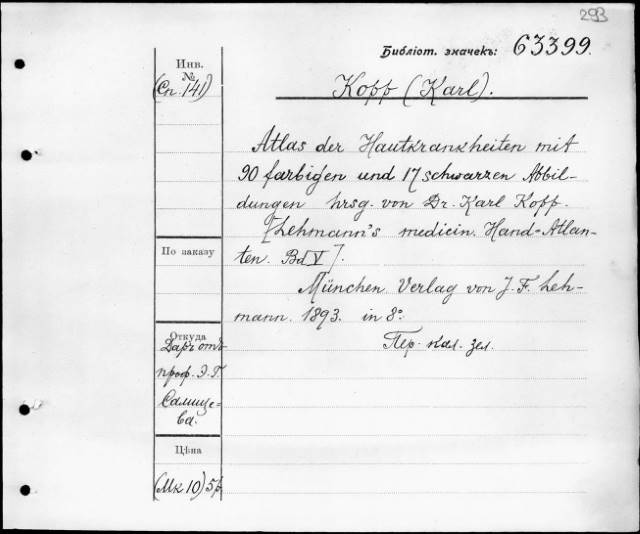 293
Библіот. значекъ: 63399.
Инв.
№
(Сп. 141)
Kopp (Karl).
Atlas der Hautkrankheiten mit
90 farbigen und 17 schwarzen Abbil-
dungen hrsg. von Dr. Karl Kopp.
[Lehmann's medicin. Hand-Atlan-
ten. Bd V].
München. Verlag von J. F. Leh-
mann. 1893. in 8°.
Пер. кал. зел.
По заказу
Откуда
Даръ отъ
проф. Э. Г.
Салище-
ва.
Цѣна
(Мк 10) 5 р.